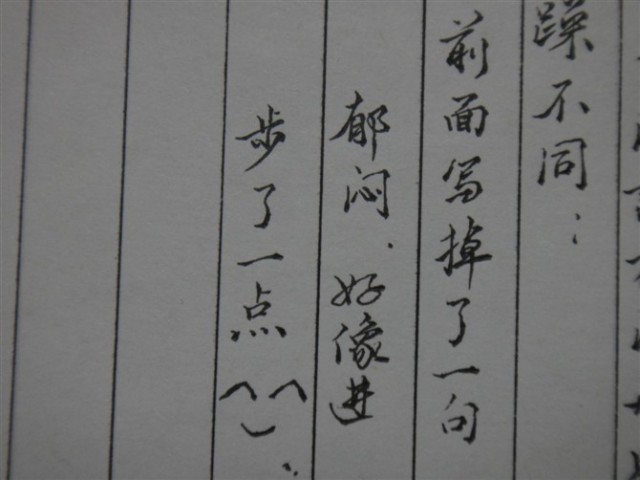 躁不同：
前面写掉了一句
郁闷.好像进
步了一点